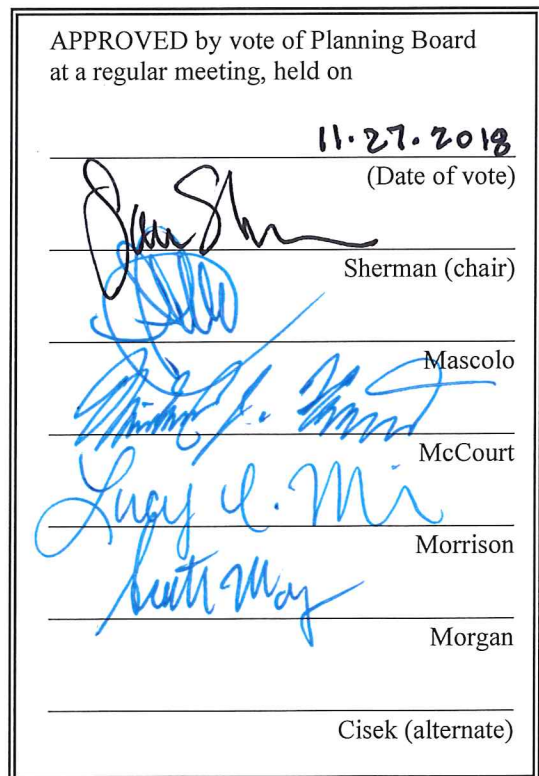 APPROVED by vote of Planning Board
at a regular meeting, held on
11.27.2018
(Date of vote)
Sherman (chair)
Mascolo
McCourt
Lucy
Morrison
Scott
Morgan
Cisek (alternate)